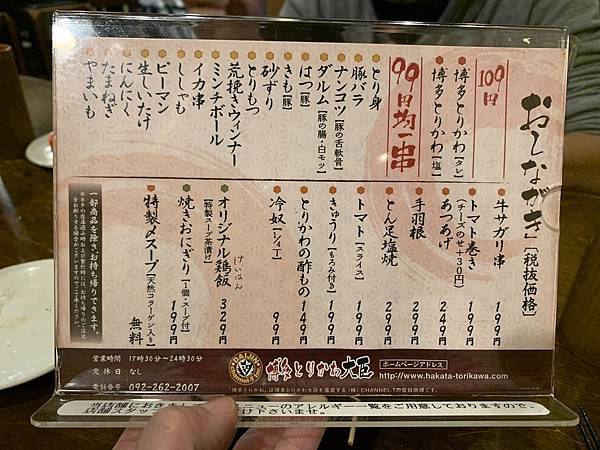 おしながき[税抜価格]
109円
博多とりかわ[タレ]
博多とりかわ[塩]
99円均一串
とり身
豚バラ
ナンコツ[豚の舌軟骨]
ダルム[豚の腸・白モツ]
はつ[豚]
きも[豚]
砂ずり
とりもつ
荒挽きウィンナー
ミンチボール
イカ串
ししゃも
ピーマン
生しいたけ
にんにく
たまねぎ
やまいも
牛サガリ串 199円
トマト巻き 199円
(チーズのせ+30円)
あつあげ 249円
手羽根 299円
とん足塩焼 299円
トマト[スライス] 199円
きゅうり[もろみ付き] 199円
とりかわの酢もの 149円
冷奴[レギュー] 99円
オリジナル鶏飯 329円
けいはん
[特製スープ茶漬け]
焼きおにぎり[1個・スープ付] 199円
特製〆スープ[天然コラーゲン入り] 無料
一部商品を除き、お持ち帰りできます。
営業時間 17時30分~24時30分
定休日 なし
電話番号 092-262-2007
博多とりかわ大臣
ホームページアドレス
http://www.hakata-torikawa.com/
「博多とりかわ」は博多とりかわ大臣を運営する(株)CHANNEL-Tの登録商標です。
のアレルギー一覧をご用意しておりますので、